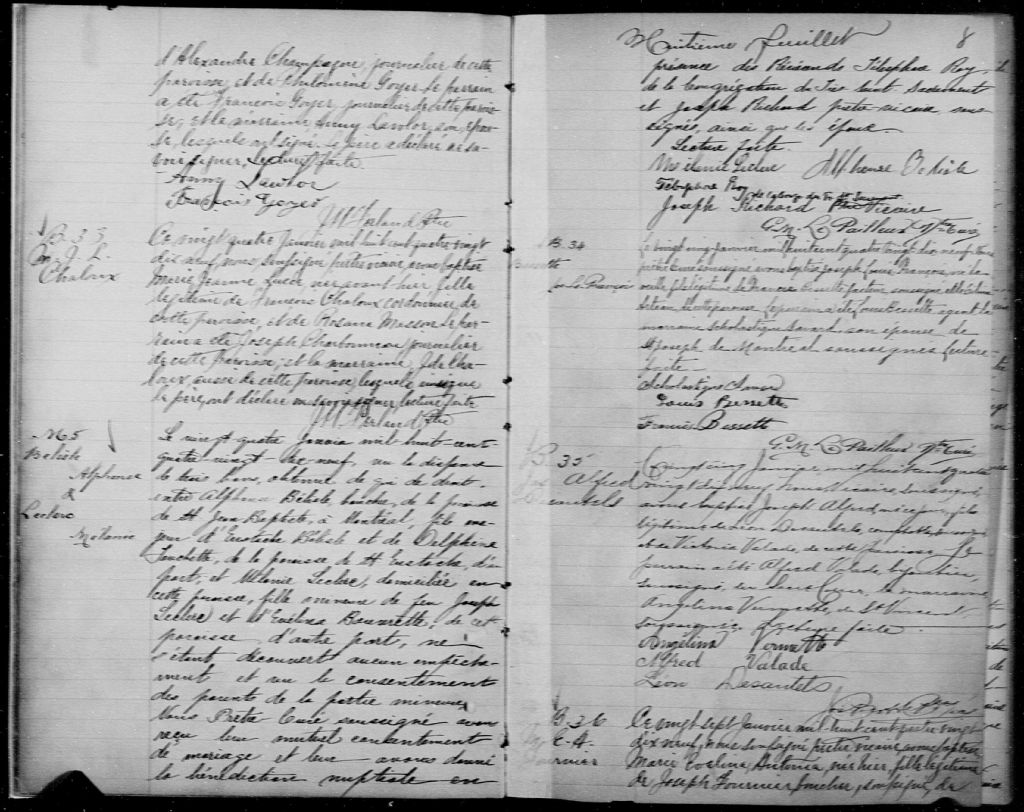 d'Alexandre Champagne, journalier de cette
paroisse, et de Philomène Goyer. Le parrain
a été François Goyer, journalier de cette parois-
se, et la marraine, Anny Lawlor, son épou-
se, lesquels ont signé. Le père a déclaré ne sa-
voir signer, Lecture faite.
Anny Lawlor
François Goyer
B. 33
M. J. L.
Chaloux
Ce vingt quatre Janvier mil huit cent quatre vingt
dix neuf, nous, soussigné, prêtre vicaire, avons baptisé
Marie Jeanne Lucie, née avant hier, fille
légitime de François Chaloux cordonnier, de
cette paroisse, et de Rosanna Masson. Le par-
rain a été Joseph Charbonneau journalier
de cette paroisse, et la marraine, Ida Cha-
loux, aussi de cette paroisse, lesquels ainsi que
le père, ont déclaré ne savoir signer, lecture faite
M 5
Bélisle
Alphonse
&
Leclerc
Mélanie
Le vingt quatre janvier mil huit-cent
quatre-vingt-dix-neuf, vu la dispense
de trois bans, obtenue de qui de droit,
entre Alphonse Bélisle, boucher, de la paroisse
de St Jean-Baptiste, à Montréal, fils ma-
jeur d'Eustache Bélisle et de Delphine
Touchette, de la paroisse de St Eustache, d'une
part, et Mélanie Leclerc, domiciliée en
cette paroisse, fille mineure de feu Joseph
Leclerc et d'Evelina, de cette
paroisse, d'autre part, ne
s'étant découvert aucun empêche-
ment et vu le consentement
des parents de la partie mineure
Nous Prêtre Curé soussigné avons
reçu leur mutuel consentement
de mariage et leur avons donné
la bénédiction nuptiale en
Huitième feuillet
8
présence des Révérends Télesphore Roy,
de la congrégation du Très Saint Sacrement
et Joseph Richard prêtre-vicaire, sous-
signés, ainsi que les époux
Lecture faite.
Mélanie Leclerc Alphonse Bélisle
Télesphore Roy
Joseph Richard Ptre Vicaire
G. M. Le Pailleur Ptre Curé
B. 34
Bessette
Jos. Ls. François
Le vingt cinq janvier mil huit cent quatre vingt dix neuf, nous
prêtre curé soussigné avons baptisé Joseph Louis François, né la
veille, fils légitime de François Bessette facteur, soussigné, et de
de cette paroisse. Le parrain a été Louis Bessette, agent la
marraine Scholastique, son épouse, de
St Joseph de Montréal soussignés lecture
faite
Louis Bessette
Francis Bessett
G. M. Le Pailleur Ptre Curé
B. 35
Jos Alfred
Desautels
Ce vingt cinq Janvier, mil huit cent quatre
vingt dix neuf, nous Vicaire, soussigné,
avons baptisé Joseph Alfred, né ce jour, fils
légitime de Léon Desautels,
et de Victoria Valade, de cette paroisse. Le
parrain a été Alfred Valade, bijoutier,
soussigné, du Sacré Cœur, la marraine
Angélina, de St Vincent,
soussignée. Lecture faite.
Angélina
Alfred Valade
Léon Desautels
B. 36
M. E. A.
Fournier
Ce vingt sept Janvier mil huit cent quatre vingt
dix neuf, nous soussigné prêtre vicaire, avons baptisé
Marie Evelina Antonia, née hier, fille légitime
de Joseph Fournier boucher, soussigné, de